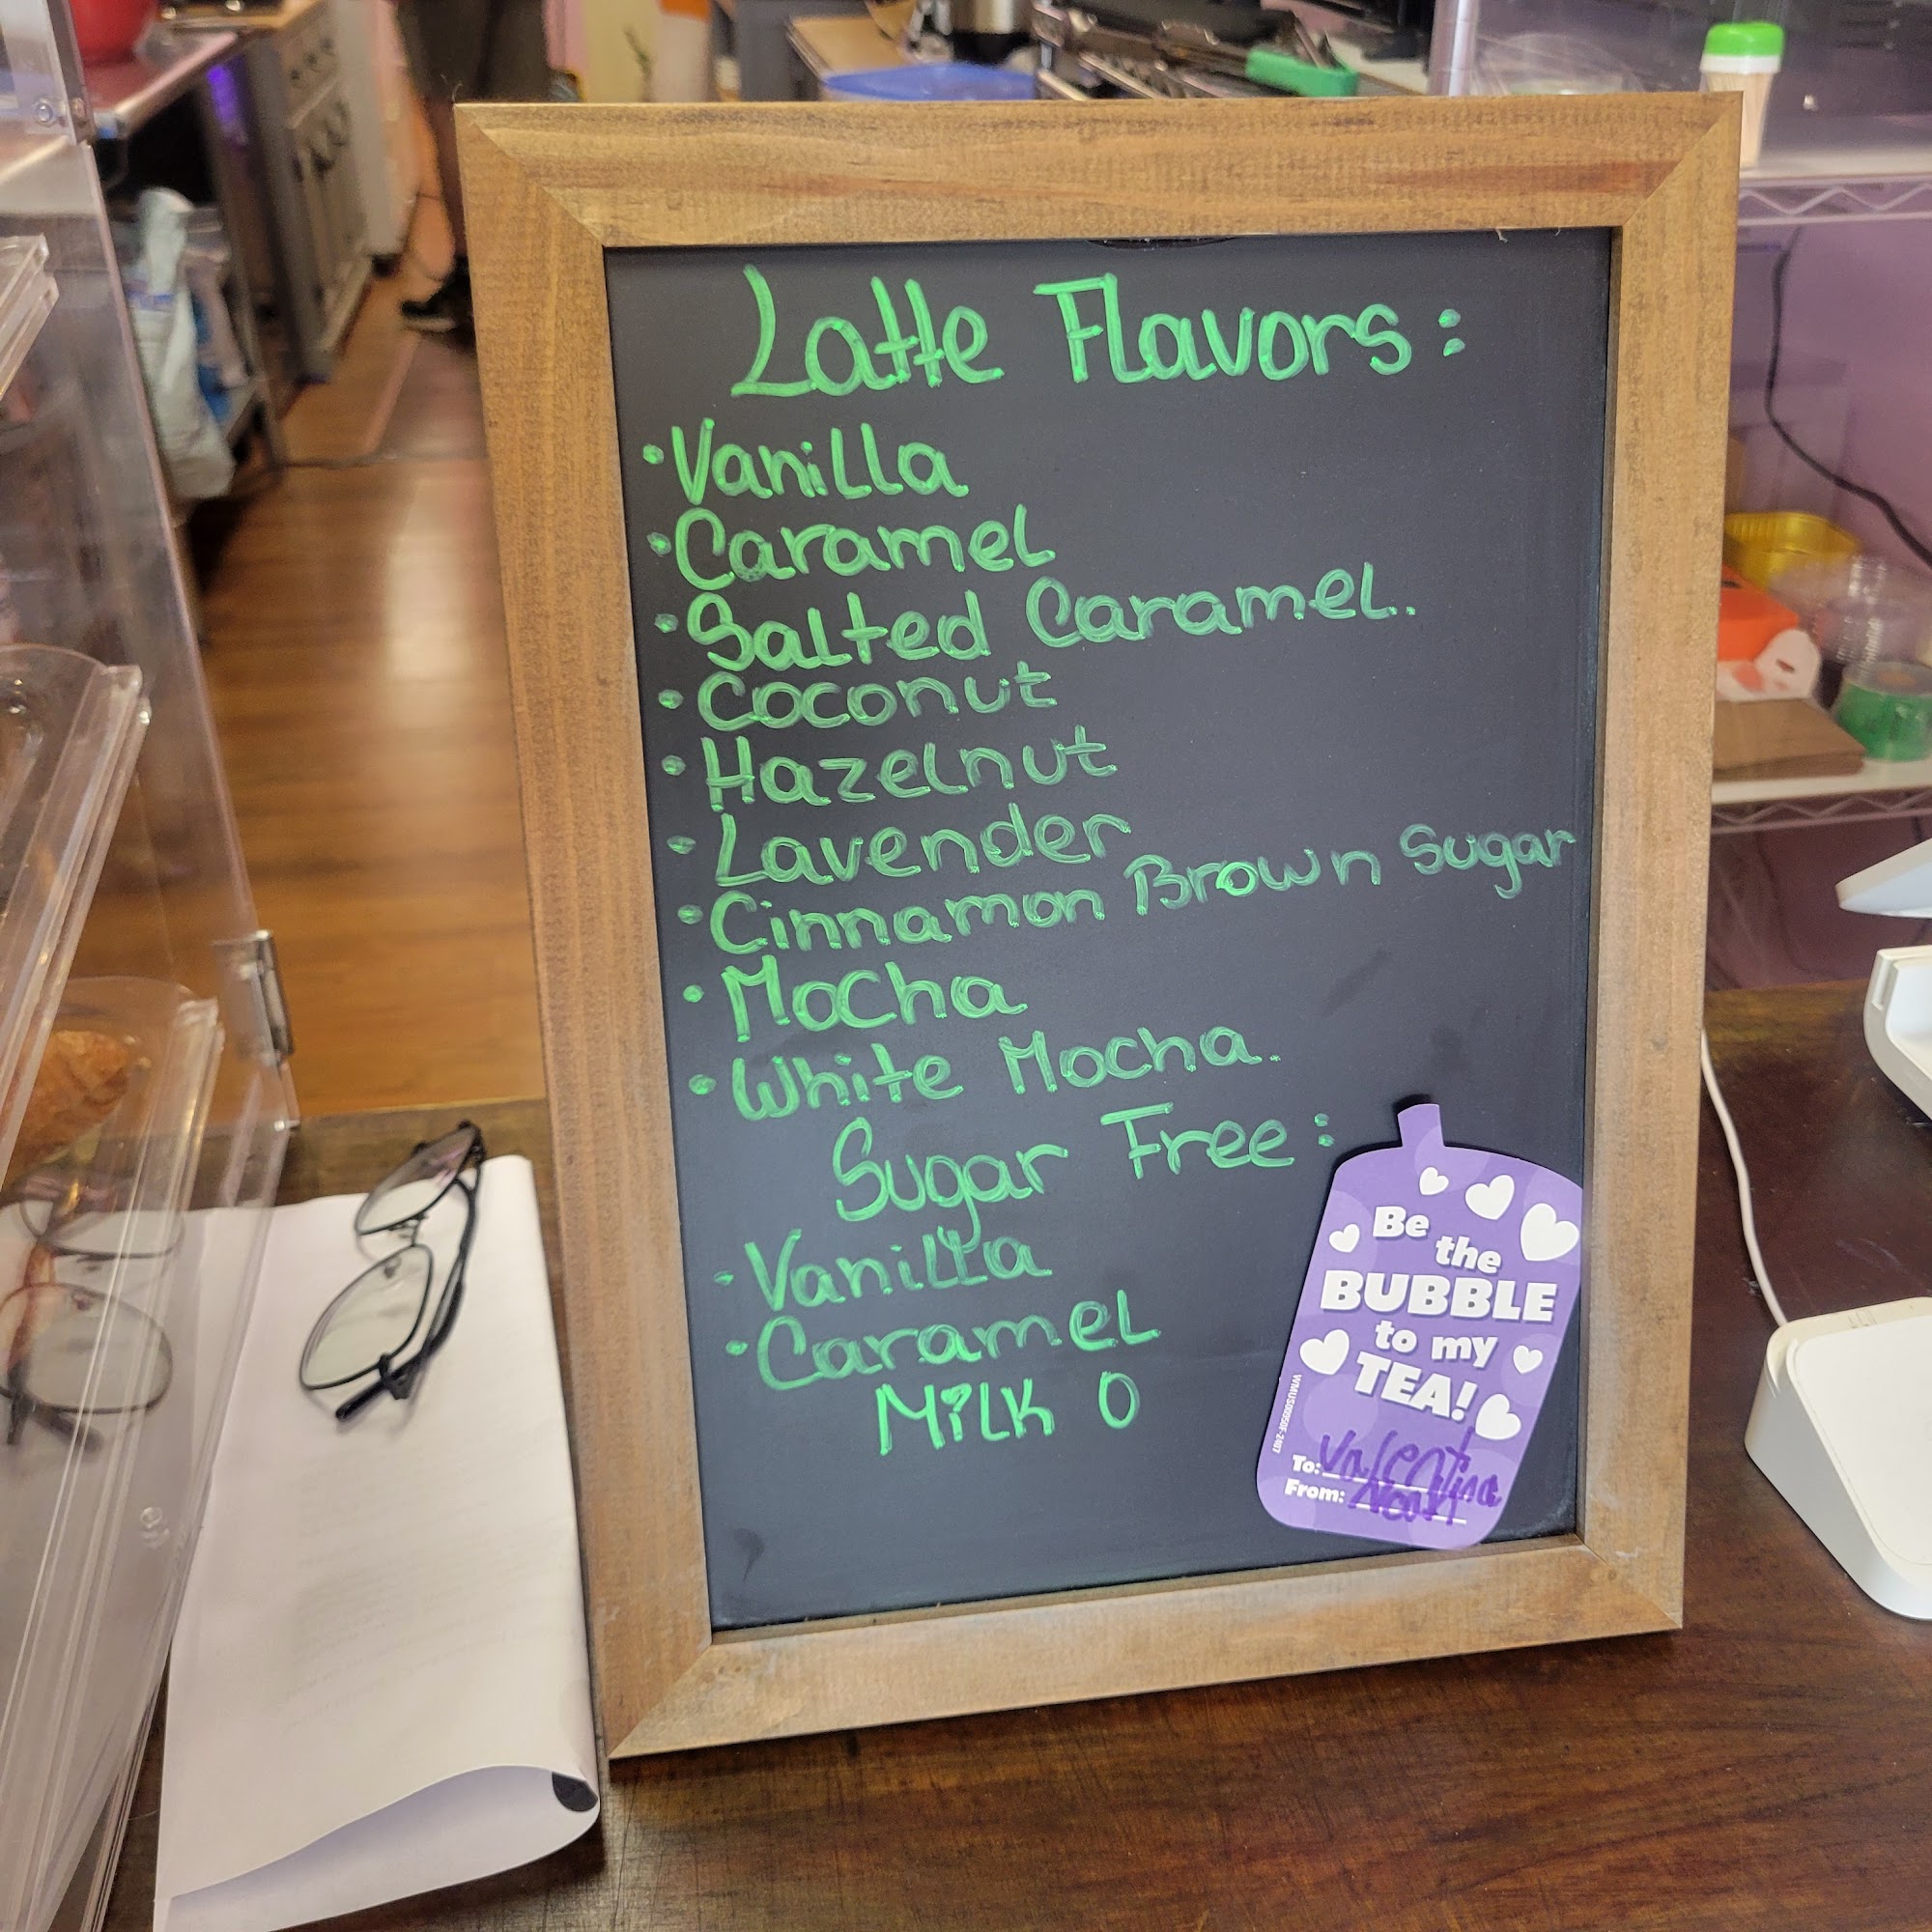 Latte Flavors:
• Vanilla
• Caramel
• Salted Caramel..
• Coconut
• Hazelnut
• Lavender
• Cinnamon Brown Sugar
• Mocha
• White Mocha.
Sugar Free:
• Vanilla
• Caramel
Milk O
Be
the
BUBBLE
to my
TEA!
To: Valentina
From: Noah